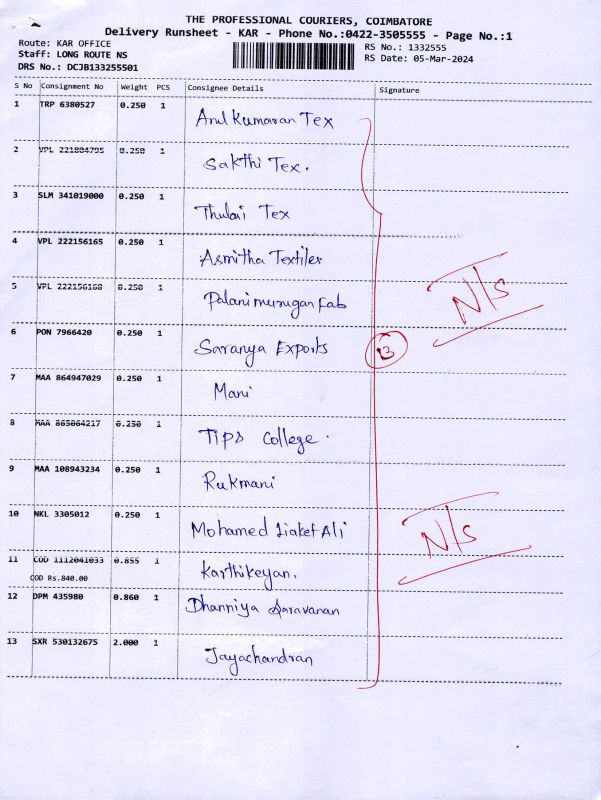 THE PROFESSIONAL COURIERS, COIMBATORE
Delivery Runsheet - KAR - Phone No.:0422-3505555 - Page No.:1
Route: KAR OFFICE
RS No.: 1332555
Staff: LONG ROUTE NS
RS Date: 05-Mar-2024
DRS No.: DCJB133255501
S No Consignment No Weight PCS Consignee Details Signature
1 TRP 6380527 0.250 1 Arulkumaran Tex
2 VPL 221804785 0.250 1 Sakthi Tex.
3 SLM 341019000 0.250 1 Thulai Tex
4 VPL 222156165 0.250 1 Asmitha Textiles
5 VPL 222156168 0.250 1 Palanimurugan Fab
N/S
6 PON 7966420 0.250 1 Saranya Exports
13
7 MAA 864947029 0.250 1 Mani
8 MAA 865064217 0.250 1 TIPS College.
9 MAA 108943234 0.250 1 Rukmani
10 NKL 3305012 0.250 1 Mohamed Liaket Ali
N/S
11 COD 1112041033 0.855 1 Karthikeyan.
COD Rs.840.00
12 DPM 435980 0.860 1 Dhanniya Saravanan
13 SXR 530132675 2.000 1 Jayachandran